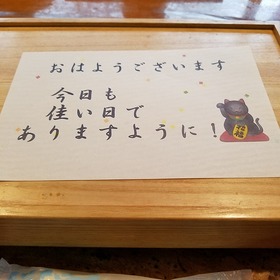 おはようございます
今日も
佳い日で
ありますように！